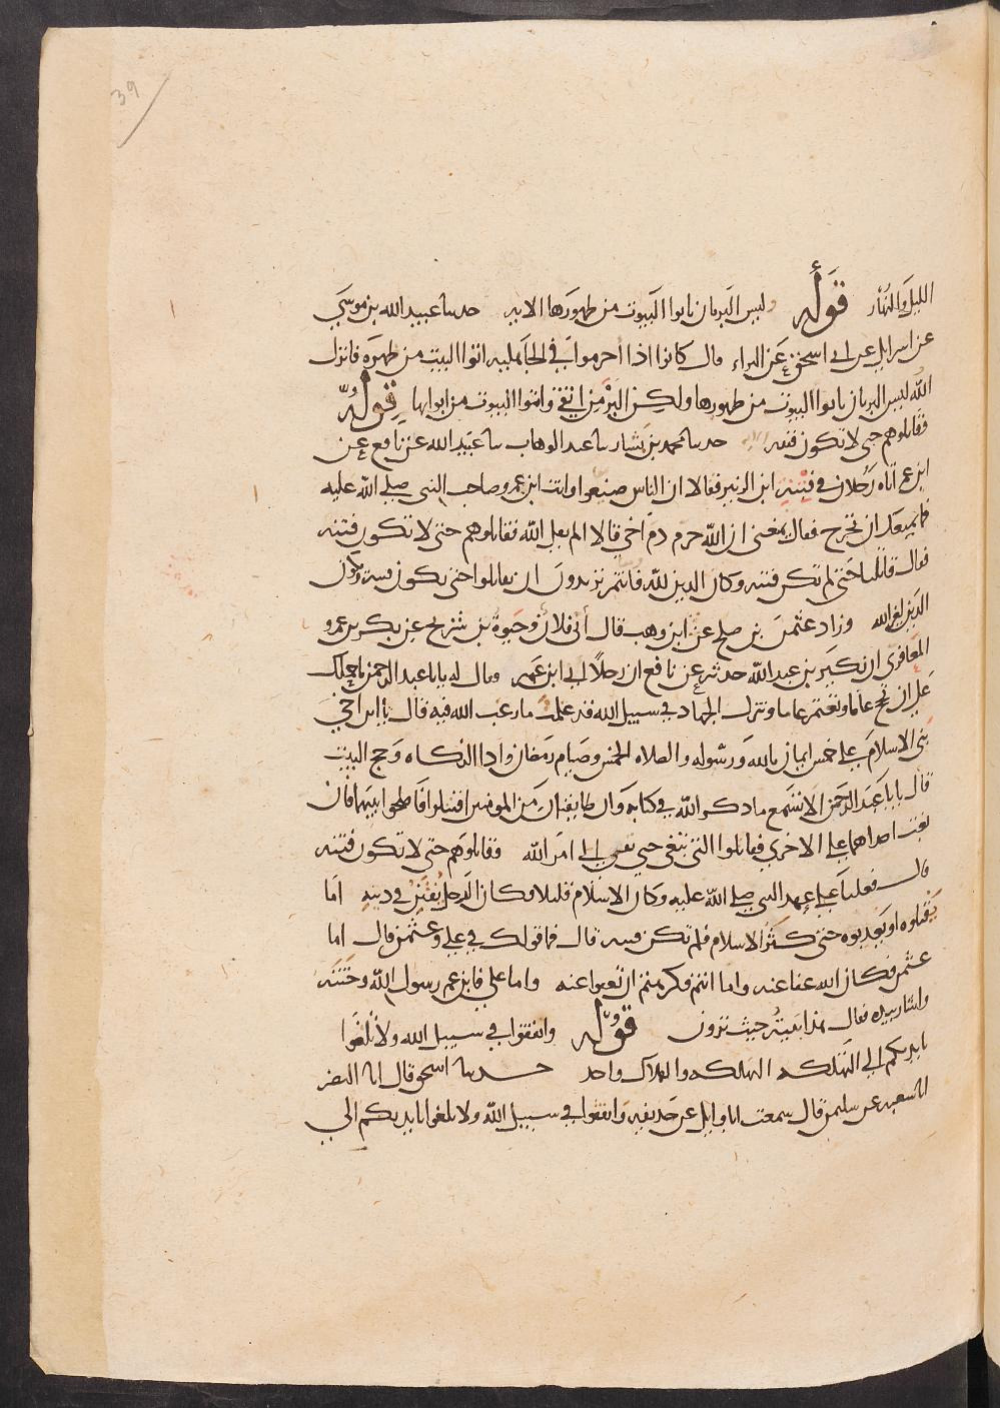 39
الليل والنهار قوله وليس البر بان تاتوا البيوت من ظهورها الايه حدثنا عبيد الله بن موسى
عن اسرايل عن ابي اسحق عن البراء قال كانوا اذا احرموا في الجاهليه اتوا البيت من ظهره فانزل
الله ليس البر بان تاتوا البيوت من ظهورها ولكن البر من اتقى واتوا البيوت من ابوابها قوله
وقاتلوهم حتى لا تكون فتنه حدثنا محمد بن بشار ثنا عبد الوهاب ثنا عبيد الله عن نافع عن
ابن عمر اتاه رجلان في فتنه ابن الزبير فقالا ان الناس صنعوا وانت ابن عمر وصاحب النبي صلى الله عليه
فما يمنعك ان تخرج فقال يمنعني ان الله حرم دم اخي قالا الم يقل الله وقاتلوهم حتى لا تكون فتنه
فقال قاتلنا حتى لم تكن فتنه وكان الدين لله فانتم تريدون ان تقاتلوا حتى تكون فتنه ويكون
الدين لغير الله وزاد عثمن بن صلح عن ابن وهب قال اني فلان وحيوة بن شريح عن بكر بن عمرو
المعافري ان بكير بن عبد الله حدثه عن نافع ان رجلا اتى ابن عمر وقال له يا با عبد الرحمن ما حملك
على ان تحج عاما وتعتمر عاما وتترك الجهاد في سبيل الله قد علمت ما رغب الله فيه قال يا ابن اخي
بني الاسلام على خمس ايمان بالله ورسوله والصلاه الخمس وصيام رمضان وادا الزكاه وحج البيت
قال يا با عبد الرحمن الا تسمع ما ذكر الله في كتابه وان طايفتان من المومنين اقتتلوا فاصلحوا بينهما فان
بغت احداهما على الاخرى فقاتلوا التي تبغي حتى تفي الى امر الله وقاتلوهم حتى لا تكون فتنه
قال فعلنا على عهد النبي صلى الله عليه وكان الاسلام قليلا وكان الرجل يفتن في دينه اما
يقتلوه او يعذبوه حتى كثر الاسلام فلم تكن فتنه قال فما قولك في علي وعثمن قال اما
عثمن فكان الله عفا عنه واما انتم فكرهتم ان تعفوا عنه واما علي فابن عم رسول الله وختنه
واشار بيده فقال هذا بيته حيث ترون قوله وانفقوا في سبيل الله ولا تلقوا
بايديكم الى التهلكه التهلكه والهلاك واحد حدثنا اسحق قال انا النضر
انا شعبه عن سليمن قال سمعت ابا وايل عن حذيفه وانفقوا في سبيل الله ولا تلقوا بايديكم الى